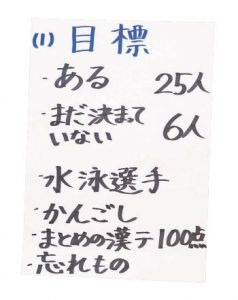 (1) 目標
・ある 25人
・まだ決まって
いない 6人
・水泳選手
・かんごし
・まとめの漢テ100点
・忘れもの